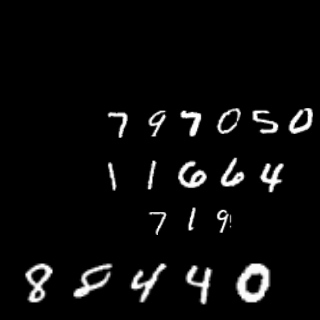 797050
11664
719
88440